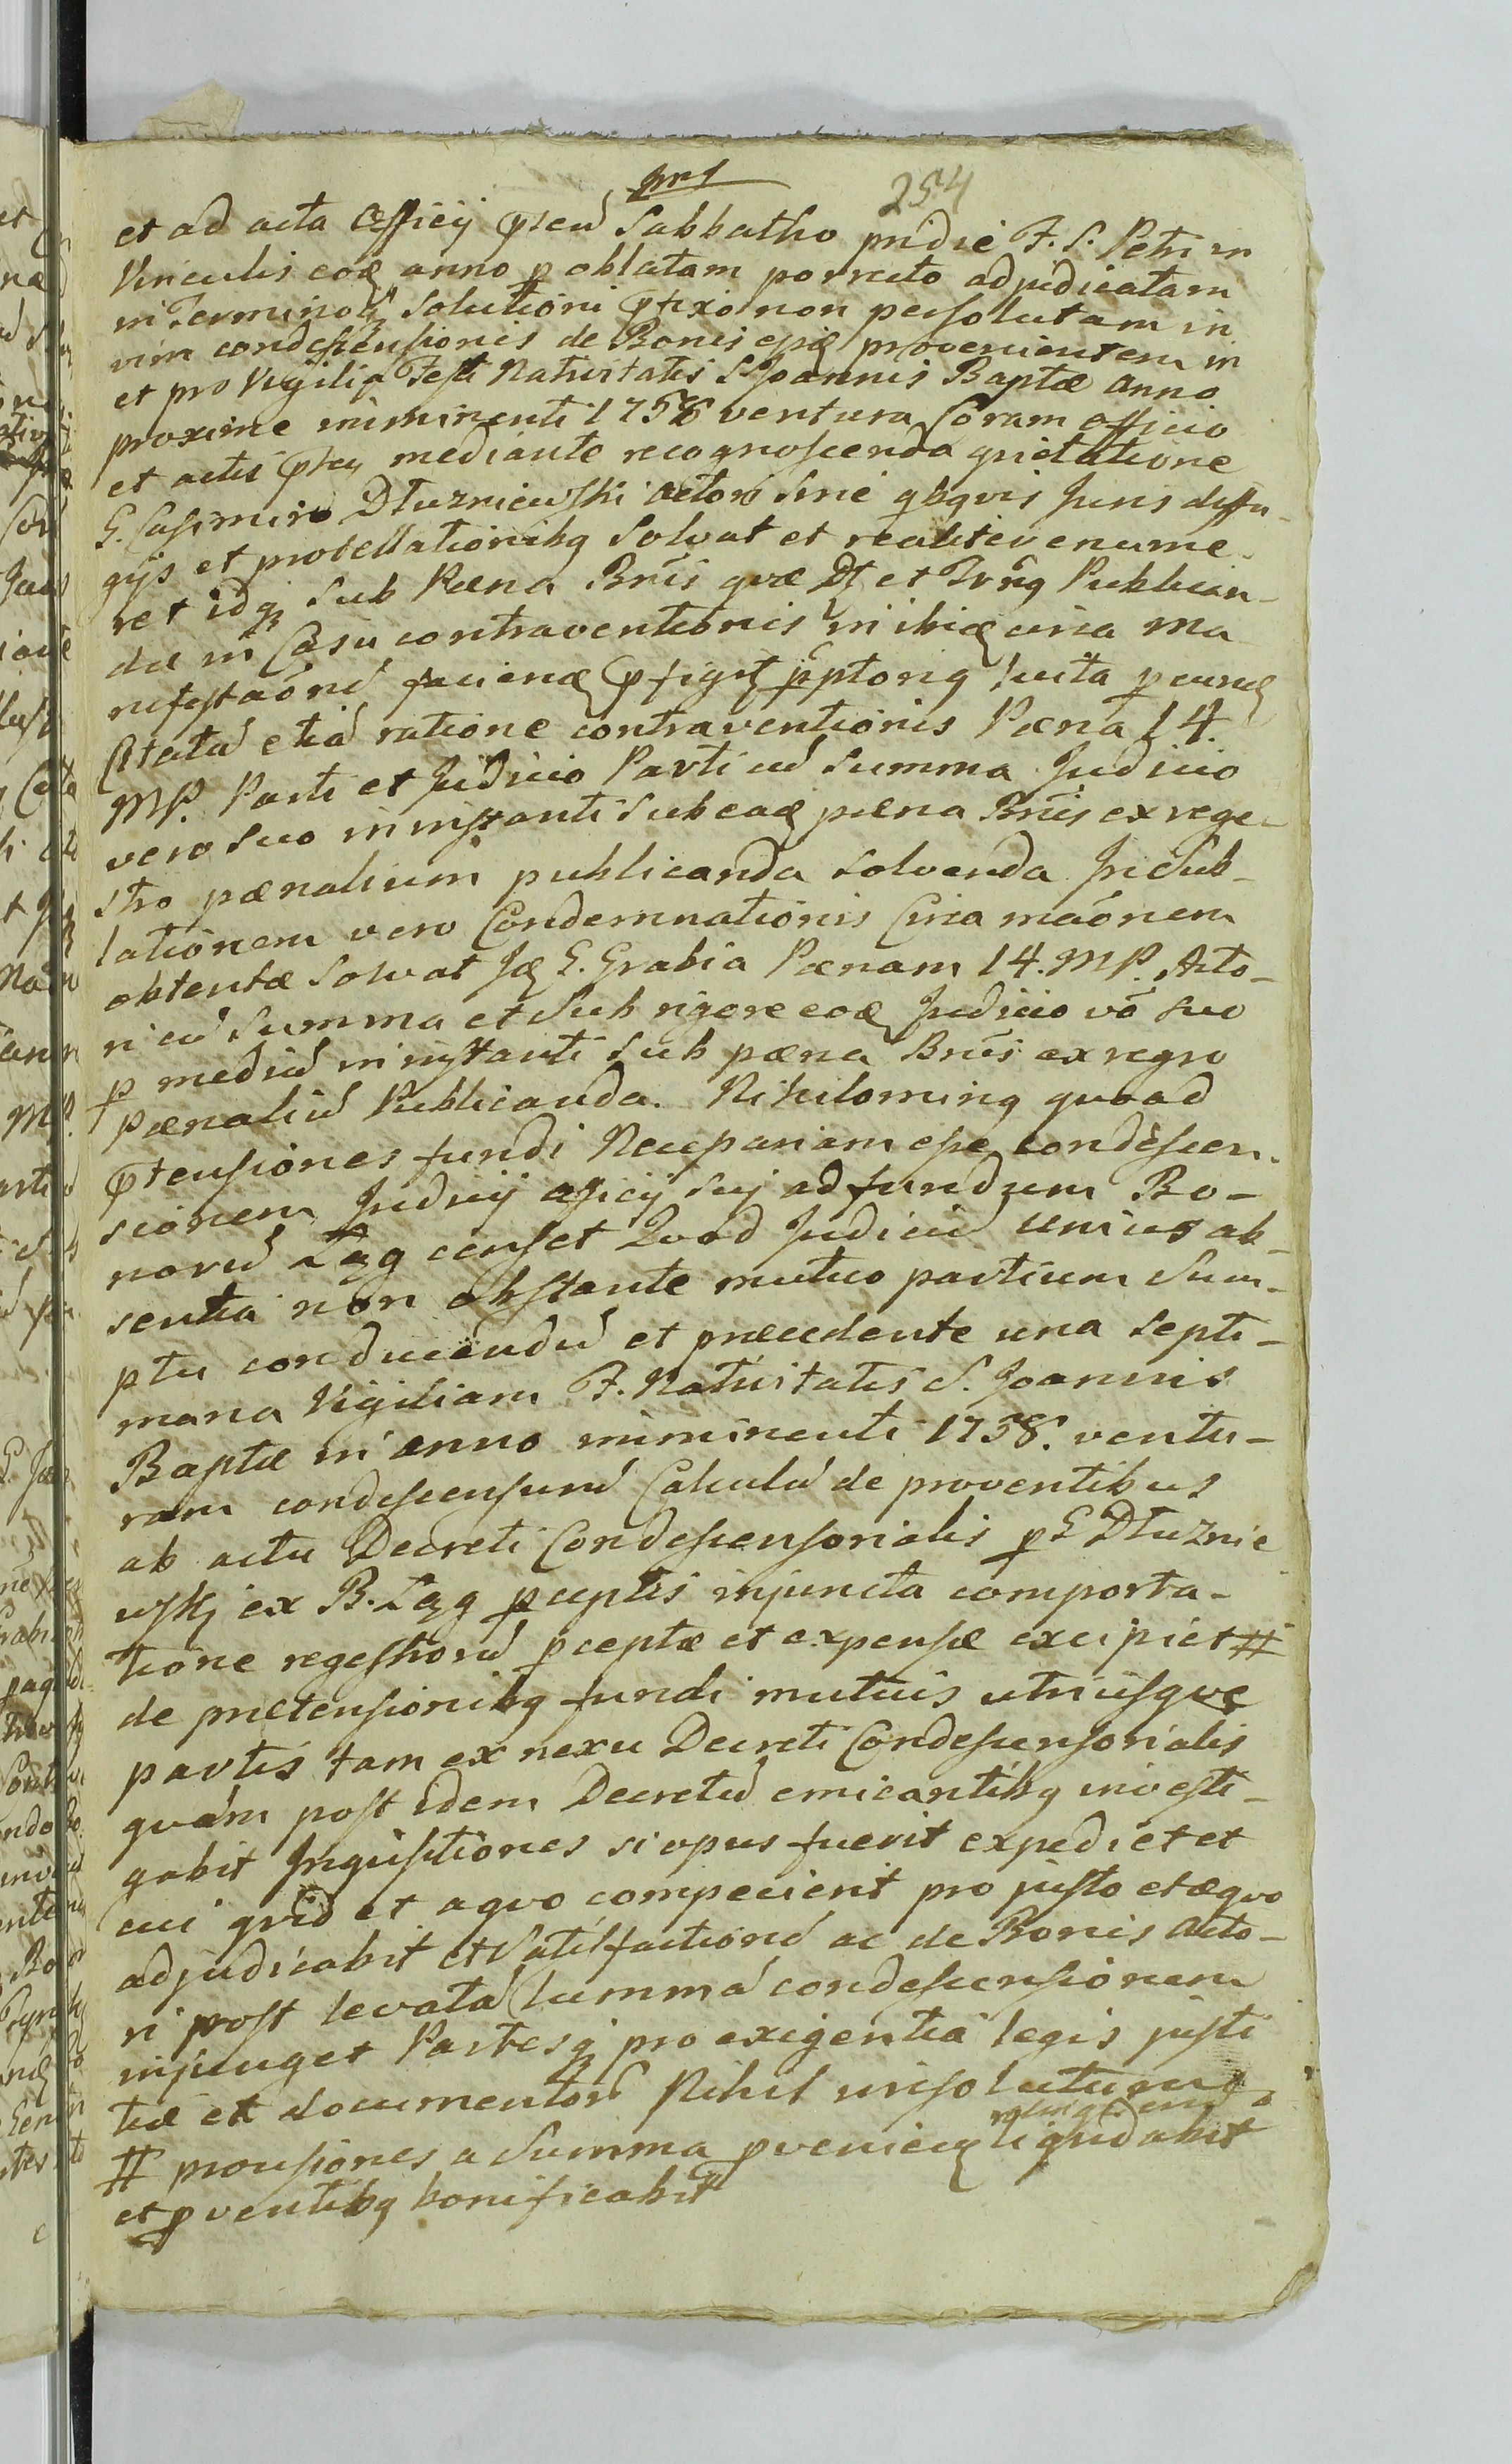 254
et ad acta Officij pntiu Sabbatho pridie F. S. Petri in
Vinculis eoq anno p oblatam porrecto adjudicatam
in Termino solutioni pfixo non persolutam in
vim condescensionis de Bonis ejq provenientem in
et pro Vigilia Festi Nativitatis S Joannis Baptæ anno
proxime imminenti 1758 ventura Coram officio
et actis mediante recognoscenda qvietatione
G. Casimiro Dłuzniewski actori sine qbqvis Juris diffu-
gijs et protestationibq solvat et realiter enume-
ret idq sub Pæna Bnis qvæ Dt et Publican-
da in Casu contraventionis in ibiq circa ma
nifestaōne faciend pfigit pptoriq lucta
etiā ratione contraventionis Pæna 14.
MP. Parti et Judicio Parti cū Summa Judicio
vero suo in instanti sub eaq pæna Bnis ex rege-
stro pænalium publicanda solvenda In Sub-
lationem vero Condemnationis Circa maōnem
obtentæ solvat Jq G. Grabia Pænam 14. MP. Acto-
ri cū Summa et sub rigore eoq Judicio vō suo
p mediū in instanti sub pæna Bnis ex regro
pænaliū Publicanda. Nihilominq qvoad
ptensiones fundi Necessariam esse condescen-
sionem Judicij officij sui ad fundum Bo-
norū Łąg censet Qvod Judiciū unius ab-
sentia non obstante mutuo partium Sum-
ptu conducendū et præcedente una septi-
mana Vigiliam F. Nativitatis S. Joannis
Baptæ in anno imminenti 1758. ventu-
ram condescensurū Calculū de proventibus
ab actu Decreti Condescensorialis p G Dłuznie
wskj ex B. Łąg pceptis injuncta comporta-
tione regestrorū pceptæ et expensæ excipiet #
de prætensionibq fundi mutuis utriusqve
partis tam ex nexu Decreti Condescensorialis
qvám post idem Decretū emicantibq investi-
gabit Inqvisitiones si opus fuerit expediet et
cui qvid et a qvo competierit pro justo et æqvo
adjudicabit et Satisfactionē ac de Bonis Acto-
ri post levatā Summā condescensionem
injunget Partesq pro exigentia legis justi
tiæ et documentorū Nihil irresolutum
# provisiones a Summa pvenien liqvidabit
et pventibq bonificabit